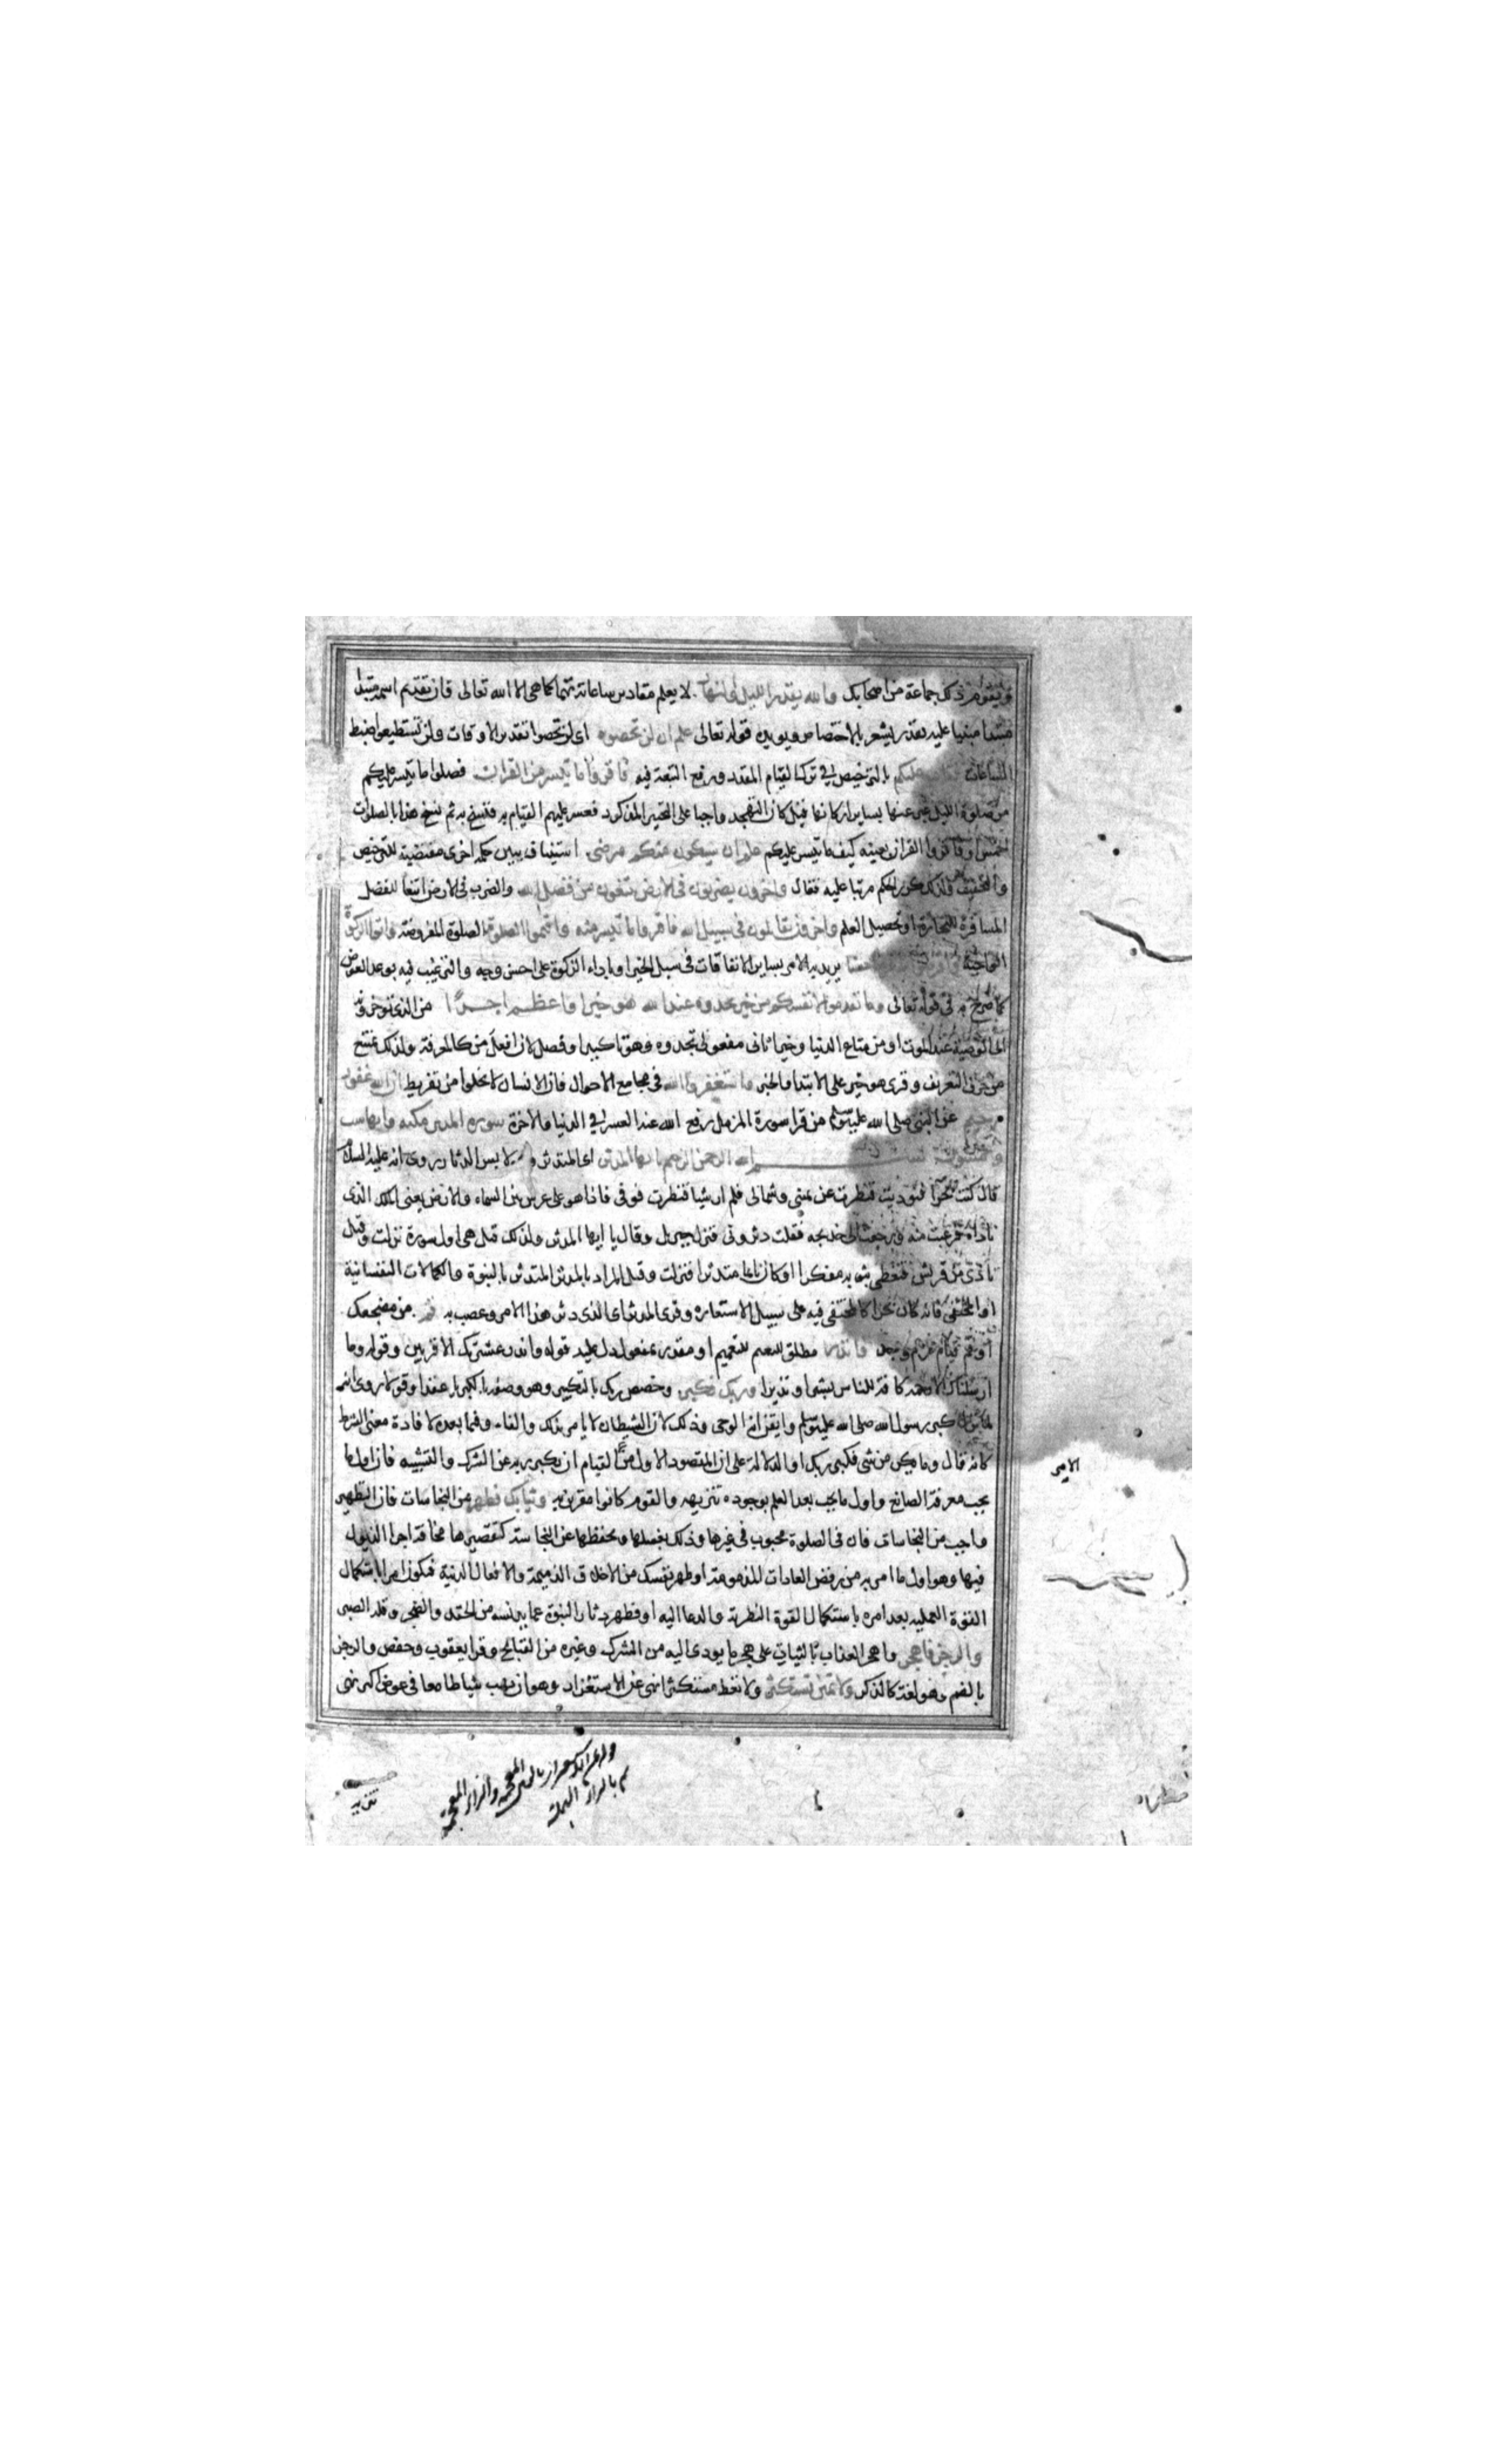 ويقوم ذلك جماعة من اصحابك والله يقدر الليل والنهار لا يعلم مقادير ساعاتهما كما هي الا الله تعالى فان تقديم اسمه مبتدا
مبنيا عليه يقدر يشعر بالاختصاص ويويده قوله تعالى علم ان لن تحصوه اي لن تحصوا تقدير الاوقات ولن تستطيعوا ضبط
الساعات فتاب عليكم بالترخيص في ترك القيام المقدر ورفع التبعة فيه فاقروا ما تيسر من القران فصلوا ما تيسر عليكم
من صلوة الليل عبر عنها بساير اركانها قيل كان التهجد واجبا على التخيير المذكور فعسر عليهم القيام به فنسخ به ثم نسخ هذا بالصلوات
الخمس او فاقروا القران بعينه كيف ما تيسر عليكم علم ان سيكون منكم مرضى استيناف يبين حكمة اخرى مقتضية للترخيص
والتخفيف ولذلك كرر الحكم مرتبا عليه فقال واخرون يضربون في الارض يبتغون من فضل الله والضرب في الارض ابتغا للفضل
المسافرة للتجارة او تحصيل العلم واخرون يقاتلون في سبيل الله فاقروا ما تيسر منه واقيموا الصلوة الصلوة المفروضة واتوا الزكوة
الواجبة حسنا يريد به الامر بساير الانفاقات في سبل الخير او باداء الزكوة على احسن وجه والترغيب فيه بوعد العوض
كما صرح به في قوله تعالى وما تقدموا لانفسكم من خير تجدوه عند الله هو خيرا واعظم اجرا من الذي توخرونه
الى الوصية عند الموت او من متاع الدنيا وخيرا ثاني مفعولي تجدوه وهو تاكيد او فصل لان افعل من كالمعرفة ولذلك يمتنع
من حرف التعريف وقرى هو خير على الابتدا والخبر واستغفروا الله في مجامع الاحوال فان الانسان لا يخلوا من تفريط ان الله غفور
رحيم عن النبي صلى الله عليه وسلم من قرا سورة المزمل رفع الله عنه العسر في الدنيا والاخرة سورة المدثر مكية وايها ست
وخمسون بسم الله الرحمن الرحيم يا ايها المدثر اي المتدثر وهو لابس الدثار روى انه عليه السلام
قال كنت بحرا فنوديت فنظرت عن يميني وشمالي فلم ار شيا فنظرت فوقي فاذا هو على عرش بين السماء والارض يعني الملك الذي
ناداه فرعبت منه ورجعت الى خديجة فقلت دثروني فنزل جبريل وقال يا ايها المدثر ولذلك قيل هي اول سورة نزلت وقيل
تاذى من قريش فتغطى بثوبه مفكرا او كان نايما متدثرا فنزلت وقيل المراد بالمدثر المتدثر بالنبوة والكمالات النفسانية
او المختفي فانه كان بحرا كالمختفي فيه على سبيل الاستعارة وقرى المدثر اي الذي دثر هذا الامر وعصب به قم من مضجعك
او قم قيام عزم وجد فانذر مطلق للتعميم او مقدر بمفعول دل عليه قوله وانذر عشيرتك الاقربين وقوله وما
ارسلناك الا كافة للناس بشيرا ونذيرا وربك فكبر وخصص ربك بالتكبير وهو وصفه بالكبرياء عقدا وقولا روى انه
لما نزل كبر رسول الله صلى الله عليه وسلم وايقن انه الوحي وذلك لان الشيطان لا يامر بذلك والفاء وفيما بعده لافادة معنى الشرط
كانه قال وما يكن من شي فكبر ربك او الدلالة على ان المقصود الاول من القيام ان يكبر ربه عن الشرك والتشبيه فان اول ما
يجب معرفة الصانع واول ما يجب بعد العلم بوجوده تنزيهه والقوم كانوا مقرين به وثيابك فطهر من النجاسات فان التطهير
واجب من النجاسات فان في الصلوة محبوب في غيرها وذلك بغسلها وبحفظها عن النجاسة كتقصيرها مخافة اجر الذيول
فيها وهو اول ما امر به من رفض العادات المذمومة او طهر نفسك من الاخلاق الذميمة والافعال الدنية فيكون امرا باستكمال
القوة العملية بعد امره باستكمال القوة النظرية والدعا اليه او فطهر دثار النبوة عما يدنسه من الحقد والضجر وقلة الصبر
والرجز فاهجر واهجر العذاب بالثبات على هجر ما يودي اليه من الشرك وغيره من القبايح وقرا يعقوب وحفص والرجز
بالضم وهو لغة كالذكر ولا تمنن تستكثر ولا تعط مستكثرا نهى عن الاستغزار وهو ان يهب شيا طامعا في عوض اكثر نهى
الامر